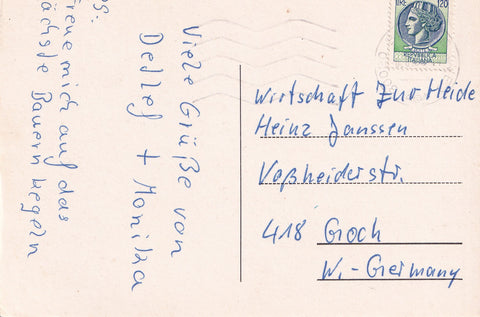 Viele Grüße von
Detlef + Monika
PS:
Freue mich auf das
nächste Bauern kegeln
LIRE 120
Wirtschaft Zur Heide
Heinz Janssen
Voßheiderstr.
418 Goch
W.-Germany